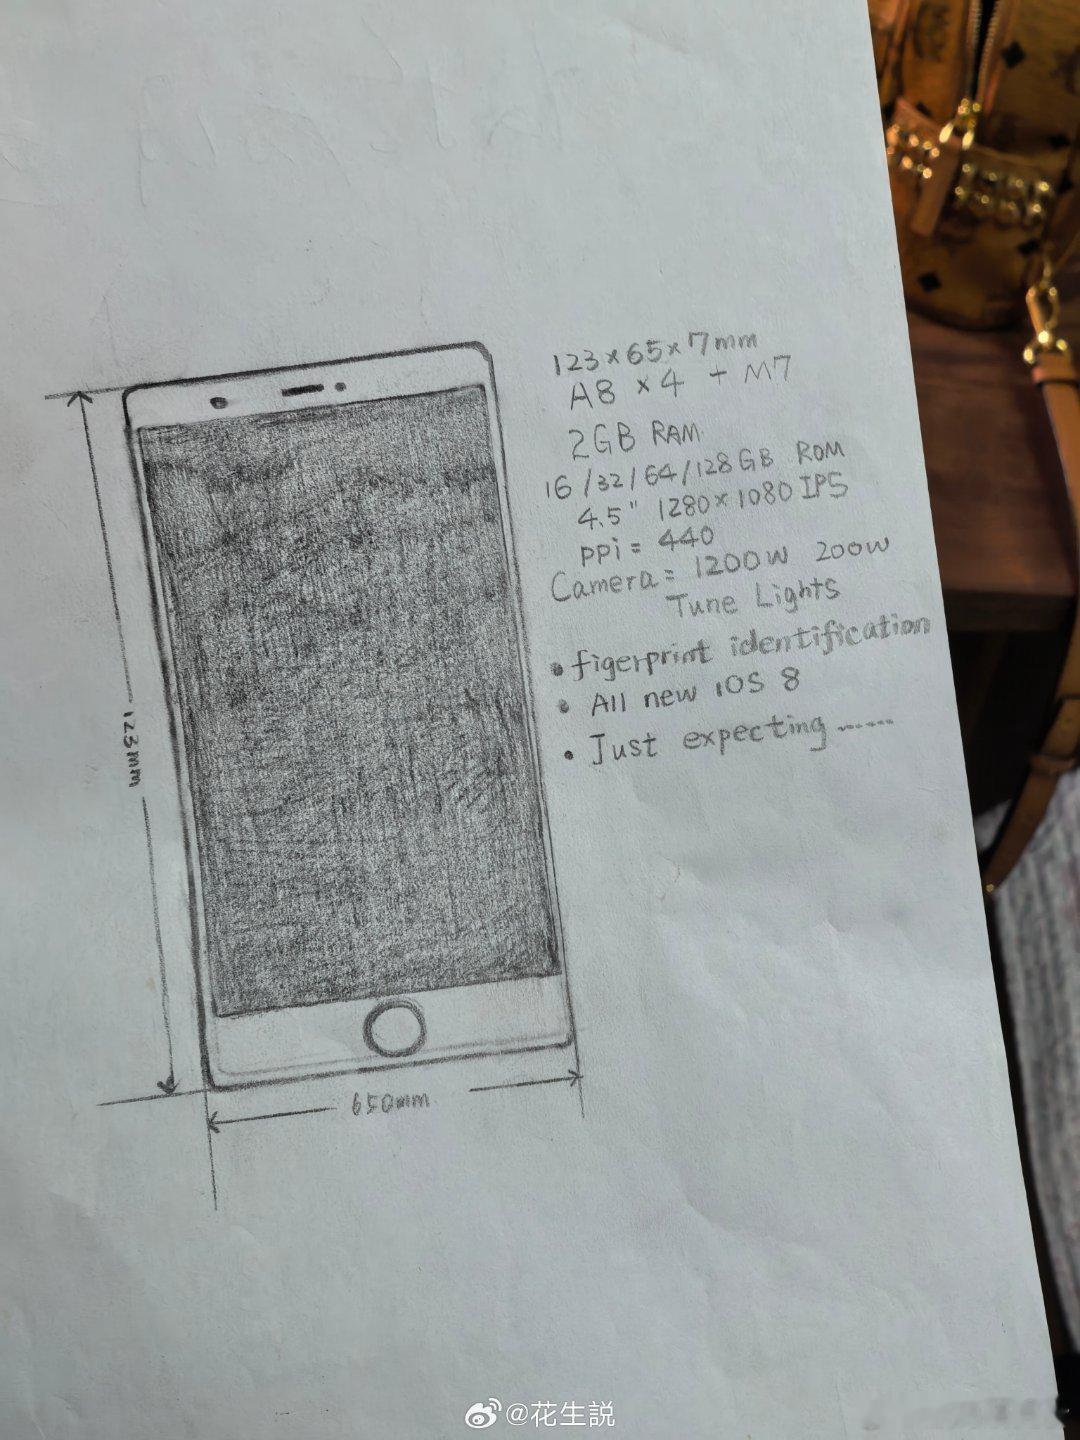 123×65×7mm
A8 ×4 + M7
2GB RAM
16/32/64/128GB ROM
4.5" 1280×1080 IPS
ppi= 440
Camera= 1200w 200w
Tune Lights
• figerprint identification
• All new iOS 8
• Just expecting......
123mm
650mm
@花生説